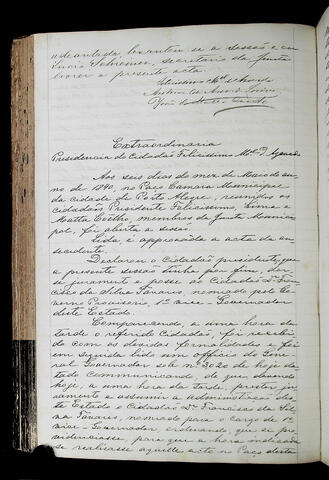 adeantada, levantou-se a sessão e eu
secretario da Junta
lavrei a presente acta.
Felicissimo M.el d'Azevedo
Extraordinaria
Presidencia do Cidadão Felicissimo M.el d'Azevedo
Aos seis dias do mez de Maio do an-
no de 1890, no Paço Camara Municipal
da cidade de Porto Alegre, reunidos os
cidadãos Presidente Felicissimo, Lima e
Matta Coelho, membros da Junta Munici-
pal, foi aberta a sessão.
Lida, e approvada a acta da an-
tecedente.
Declarou o Cidadão presidente, que
a presente sessão tinha por fim, dar-
se juramento e posse ao Cidadão Dr Fran-
cisco da Silva Tavares, nomeado pelo Go-
verno Provisorio, 1º vice-Governador
deste Estado.
Comparecendo, a uma hora da
tarde o referido Cidadão, foi recebi-
do com as devidas formalidades e foi
em seguida lido um officio do Gene-
ral Governador sob nº 3020 de hoje da-
tado communicando de que devendo
hoje, a uma hora da tarde, prestar ju-
ramento e assumir a administração des-
te Estado o Cidadão Dr Francisco da Sil-
va Tavares, nomeado para o cargo de 1º
vice-Governador ordenando que se pro-
videnciasse para que a hora indicada
se realisasse aquelle acto no Paço desta